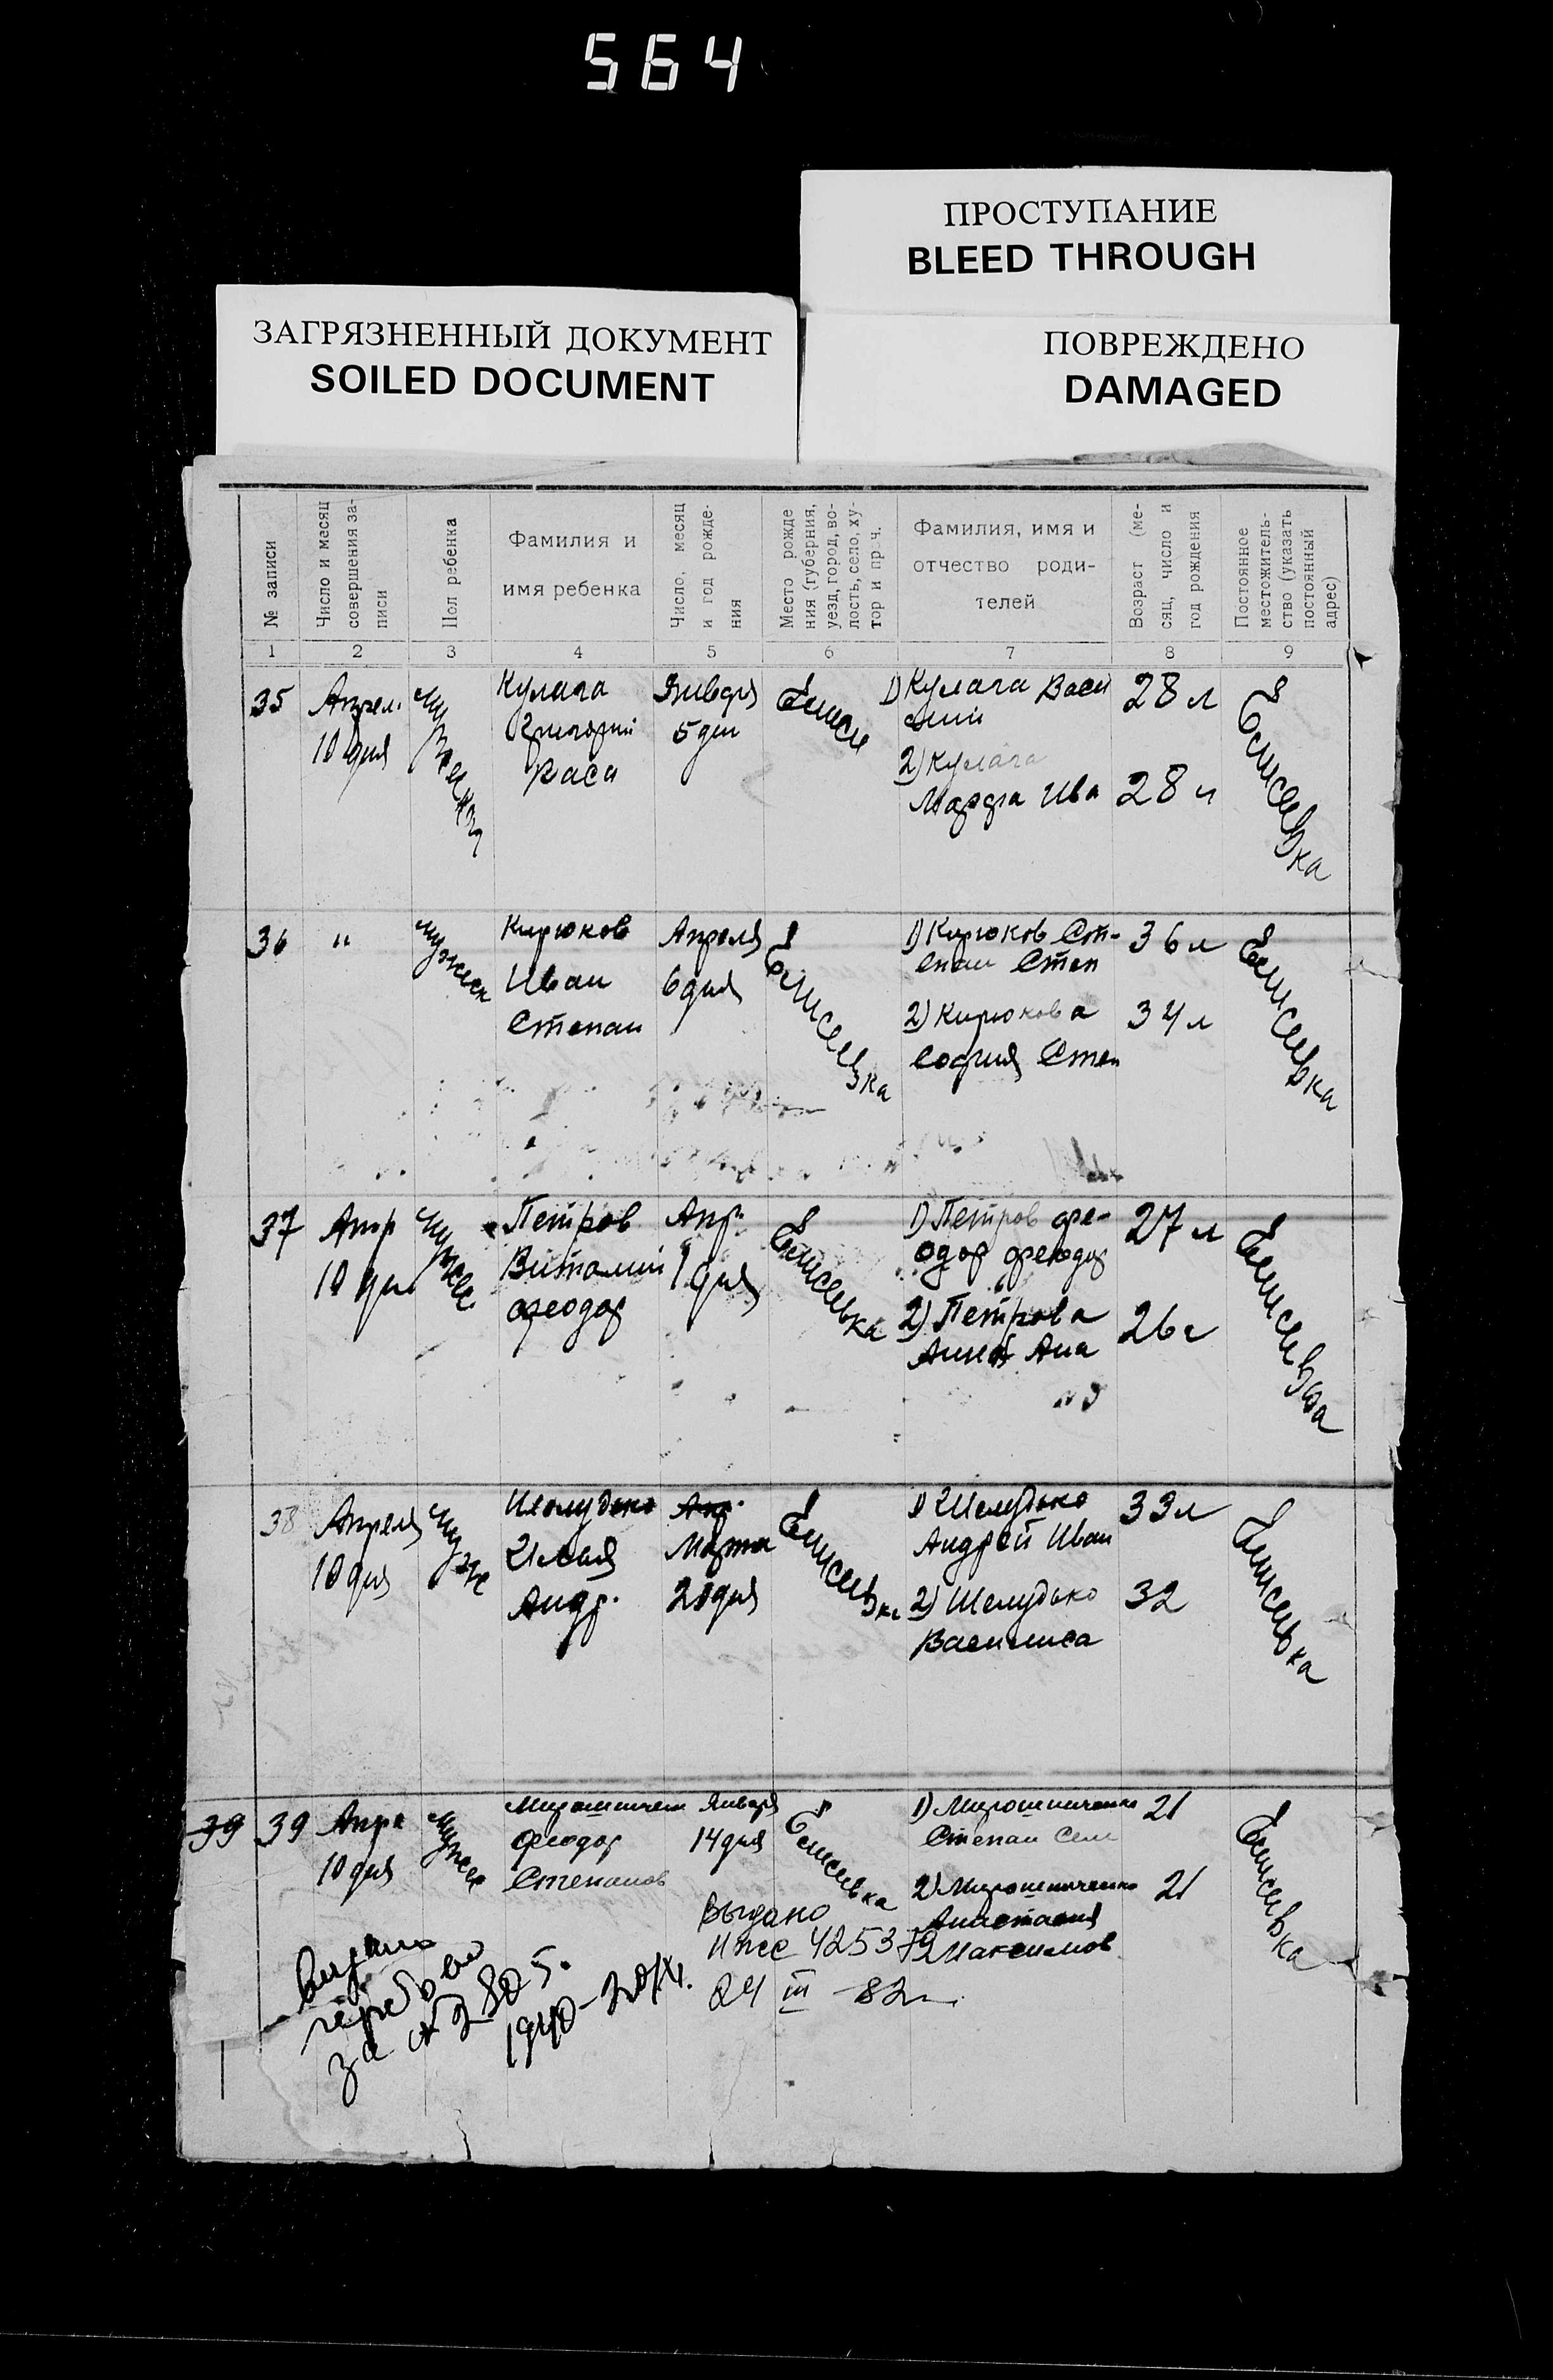 564
ПРОСТУПАНИЕ
BLEED THROUGH
ЗАГРЯЗНЕННЫЙ ДОКУМЕНТ
SOILED DOCUMENT
ПОВРЕЖДЕНО
DAMAGED
№ записи
Число и месяц
совершения за-
писи
Пол ребенка
Фамилия и
имя ребенка
Число, месяц
и год рожде-
ния
Место рожде
ния (губерния,
уезд, город, во-
лость, село, ху-
тор и проч.
Фамилия, имя и
отчество роди-
телей
Возраст (ме-
сяц, число и
год рождения
Постоянное
местожитель-
ство (указать
постоянный
адрес)
1 2 3 4 5 6 7 8 9
35
Апрел.
10 дня
Кулага
Григорий
Васи
Января
5 дн
Елисе
1) Кулага Васи
лий
2) Кулага
Марфа Ива
28 л
28 л
Елисеевка
36
"
мужск
Кирюков
Иван
Степан
Апреля
6 дня
Елисеевка
1) Кирюков Ст-
епан Степ
2) Кирюкова
София Степ
36 л
34 л
Елисеевка
37
Апр
10 дн
мужс
Петров
Виталий
Феодор
Апр
1 дня
Елисеевка
1) Петров Фе-
одор Феодор
2) Петрова
Анна Ана
27 л
26 л
Елисеевка
38
Апреля
10 дня
муж
Шелудько
Илья
Андр.
Апр.
Марта
20 дня
Елисеевка
1) Шелудько
Андрей Иван
2) Шелудько
Василиса
33 л
32
Елисеевка
39 39
Апре
10 дня
мужск
Мирошничен
Феодор
Степанов
Января
14 дня
Елисеевка
1) Мирошниченко
Степан Сем
2) Мирошниченко
Анастасия
Максимов
21
21
Елисеевка
Выдано
24 III 82
за № 2805.